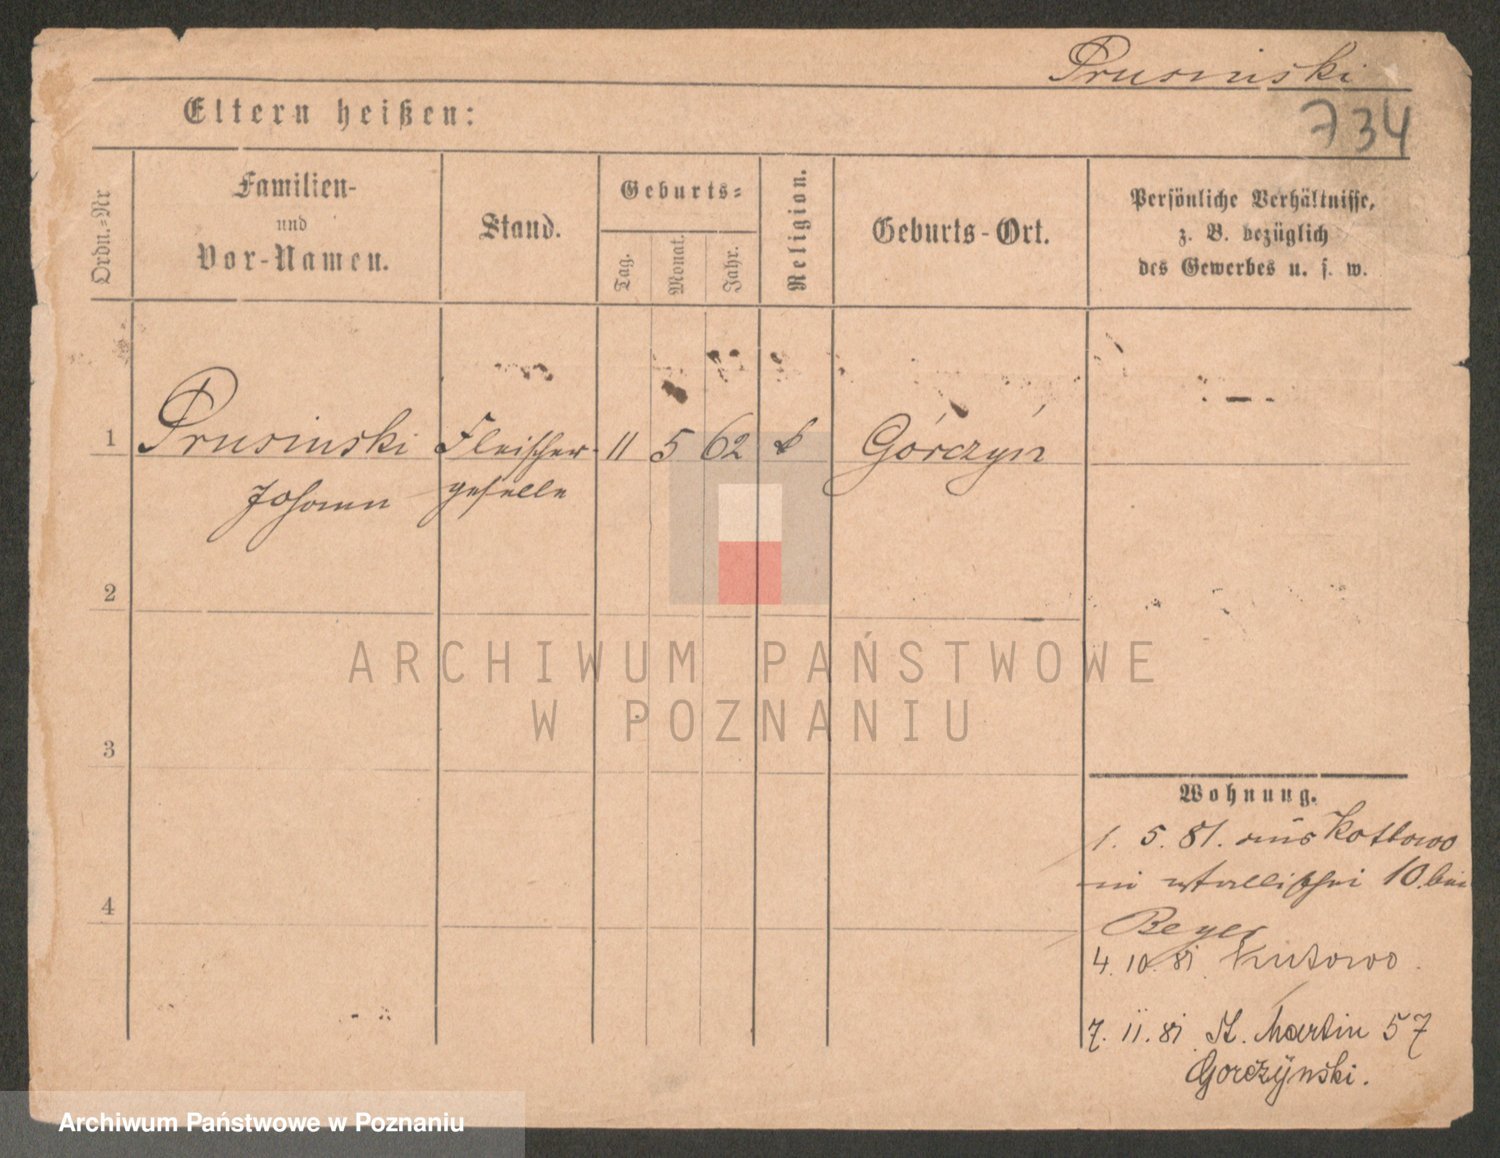 Prusinski
734
Eltern heißen:
Ordn.-Nr
Familien-
und
Vor-Namen.
Stand.
Geburts-
Tag.
Monat.
Jahr.
Religion.
Geburts-Ort.
Persönliche Verhältnisse,
z. B. bezüglich
des Gewerbes u. s. w.
1 Prusinski Fleischer- 11 5 62 Górczyn
Johann geselle
2
3
4
ARCHIWUM PAŃSTWOWE
W POZNANIU
Wohnung.
1. 5. 81. aus Kotowo
10. bei
Beyer
4. 10. 81. Kutowo.
7. 11. 81. St. Martin 57
Gorczynski.
Archiwum Państwowe w Poznaniu